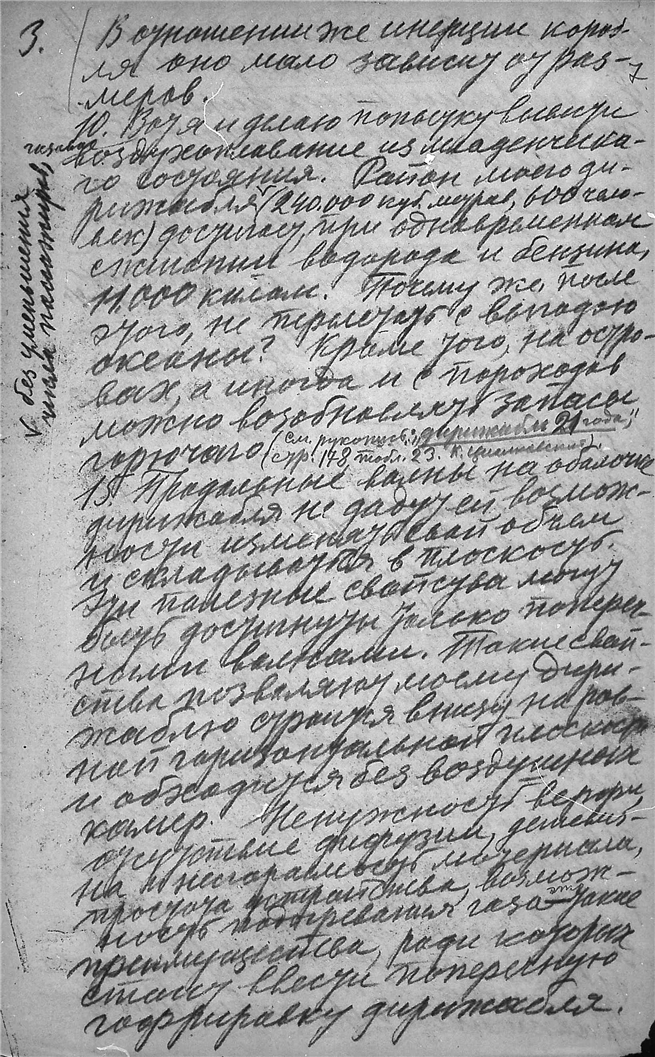 3.
В отношении же инерции кораб-
ля оно мало зависит от раз-
меров.
10. Вот я и делаю попытку вывести
воздухоплавание из младенческа-
го состояния. Район моего ди-
рижабля (240.000 куб. метров, 600 чело-
век) достигает, при одновременном
сжигании водорода и бензина,
11.000 килом. Почему же, после
этого, не перелетать с выгодою
океаны? Кроме того, на остро-
вах, а иногда и с пароходов
можно возобновлять запасы
горючаго (см. рукопись: „дирижабли 21 года,"
стр. 178, табл. 23. К. Циолковский).
Продольные волны на оболочке
дирижабля не дадут ей возмож-
ности изменять свой объем
и складываться в плоскость.
Эти полезные свойства могут
быть достигнуты только попереч-
ными волнами. Такие свой-
ства позволяют моему дири-
жаблю строиться внизу на ров-
ной горизонтальной плоскости
и обходиться без воздушных
камер. Ненужность верфи,
отсутствие диффузии, дешевиз-
на и несгораемость материала,
простота устройства, возмож-
ность подогревания газа — такие
преимущества, ради которых
стоит ввести поперечную
гофрировку дирижабля.
V без уменьшения
числа пассажиров